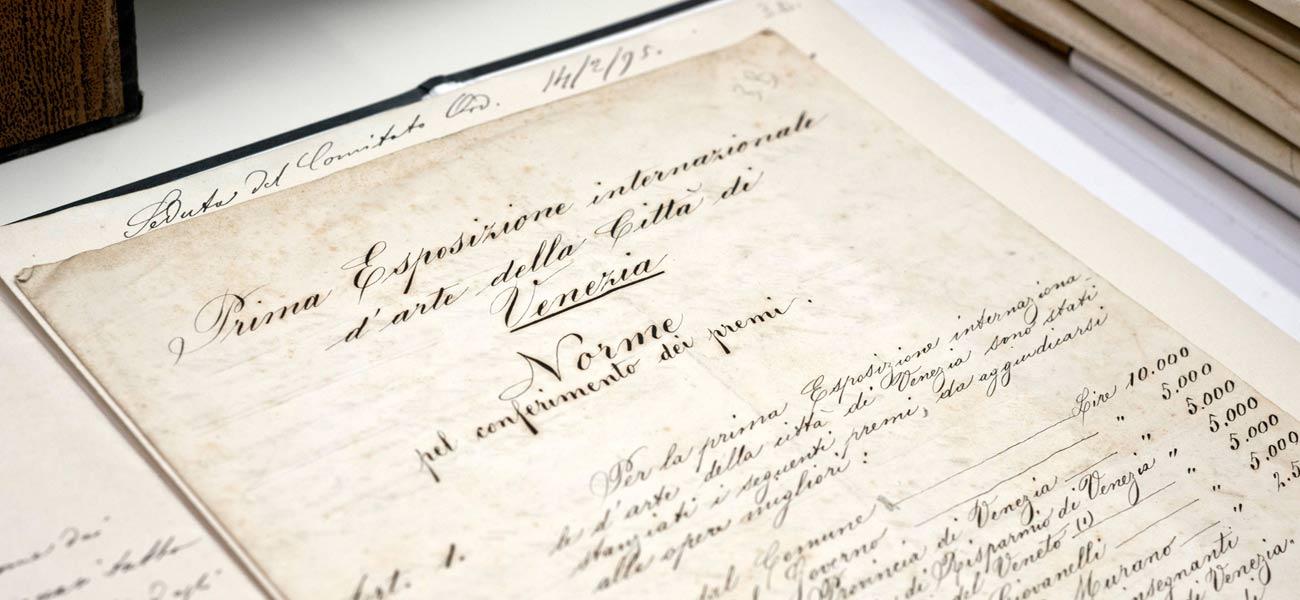 3B.
Seduta del Comitato Ord. 14/2/95.
3B
Prima Esposizione internazionale
d'arte della Città di
Venezia
Norme
pel conferimento dei premi.
Art. 1.
Per la prima Esposizione internaziona-
le d'arte della città di Venezia sono stati
stanziati i seguenti premi, da aggiudicarsi
alle opere migliori:
dal Comune Lire 10.000
Governo " 5.000
Provincia di Venezia " 5.000
di Risparmio di Venezia " 5.000
del Veneto (1) " 5.000
Giovanelli " 5.000
Murano " 2.5
insegnanti
di Venezia.